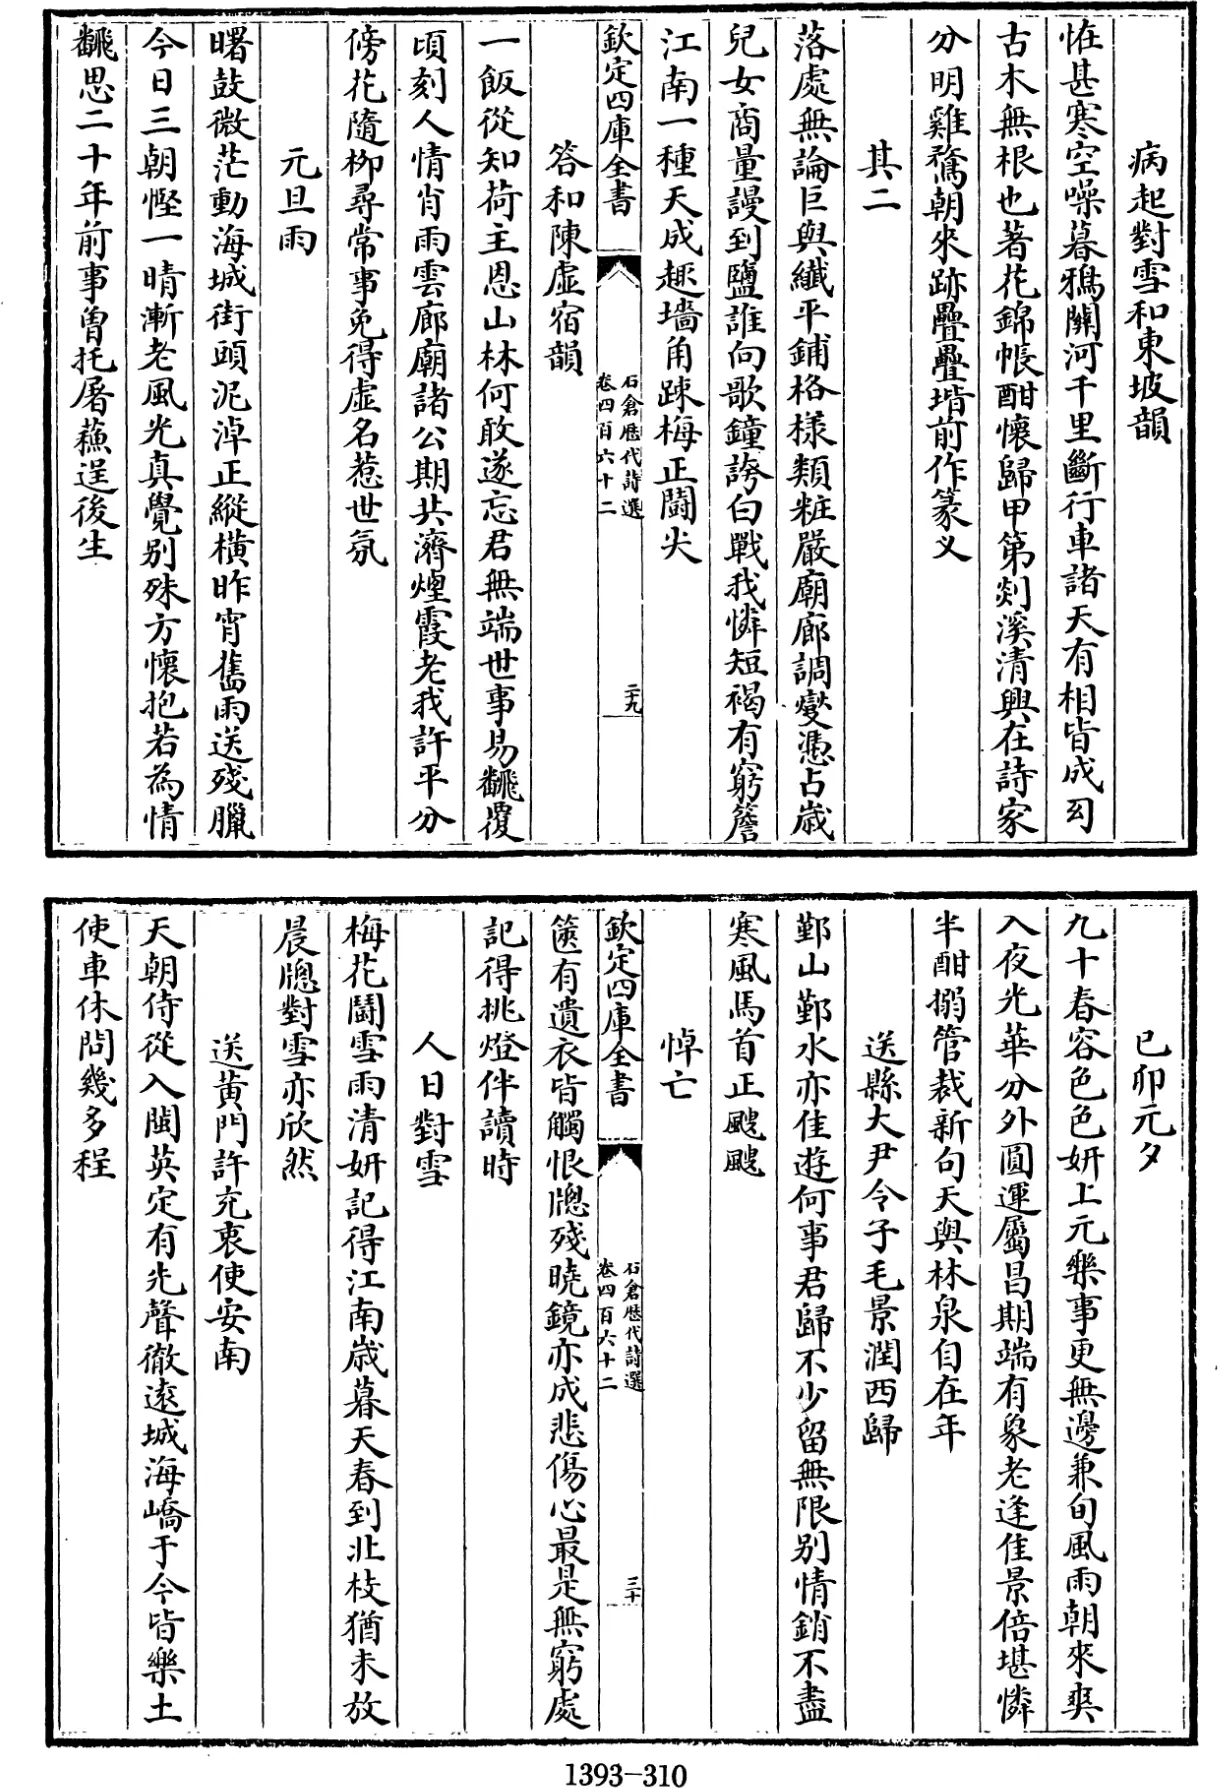 病起對雪和東坡韻
怪甚寒空噪暮鴉關河千里斷行車諸天有相皆成幻
古木無根也著花錦帳酣懷歸甲第剡溪清興在詩家
分明雞鶩朝來跡疊疊堦前作篆叉
其二
落處無論巨與纖平鋪格樣類粧嚴廟廊調燮憑占歲
兒女商量謾到鹽誰向歌鐘誇白戰我憐短褐有窮簷
江南一種天成趣墻角踈梅正鬭尖
欽定四庫全書
石倉歷代詩選
卷四百六十二
二十九
答和陳虛宿韻
一飯從知荷主恩山林何敢遂忘君無端世事易飜覆
頃刻人情肖雨雲廊廟諸公期共濟煙霞老我許平分
傍花隨栁尋常事免得虛名惹世氛
元旦雨
曙鼓微茫動海城街頭泥淖正縱橫昨宵舊雨送殘臘
今日三朝慳一晴漸老風光真覺别殊方懷抱若為情
飜思二十年前事曾托屠蘇逞後生
己卯元夕
九十春容色色妍上元樂事更無邊兼旬風雨朝來爽
入夜光華分外圓運屬昌期端有象老逢佳景倍堪憐
半酣搦管裁新句天與林泉自在年
送縣大尹令子毛景潤西歸
鄞山鄞水亦佳遊何事君歸不少留無限别情銷不盡
寒風馬首正颼颼
悼亡
欽定四庫全書
石倉歷代詩選
卷四百六十二
三十
篋有遺衣皆觸恨牕殘曉鏡亦成悲傷心最是無窮處
記得挑燈伴讀時
人日對雪
梅花鬭雪雨清妍記得江南歲暮天春到北枝猶未放
晨牕對雪亦欣然
送黄門許充衷使安南
天朝侍從入閩英定有先聲徹遠城海嶠于今皆樂土
使車休問幾多程
1393-310